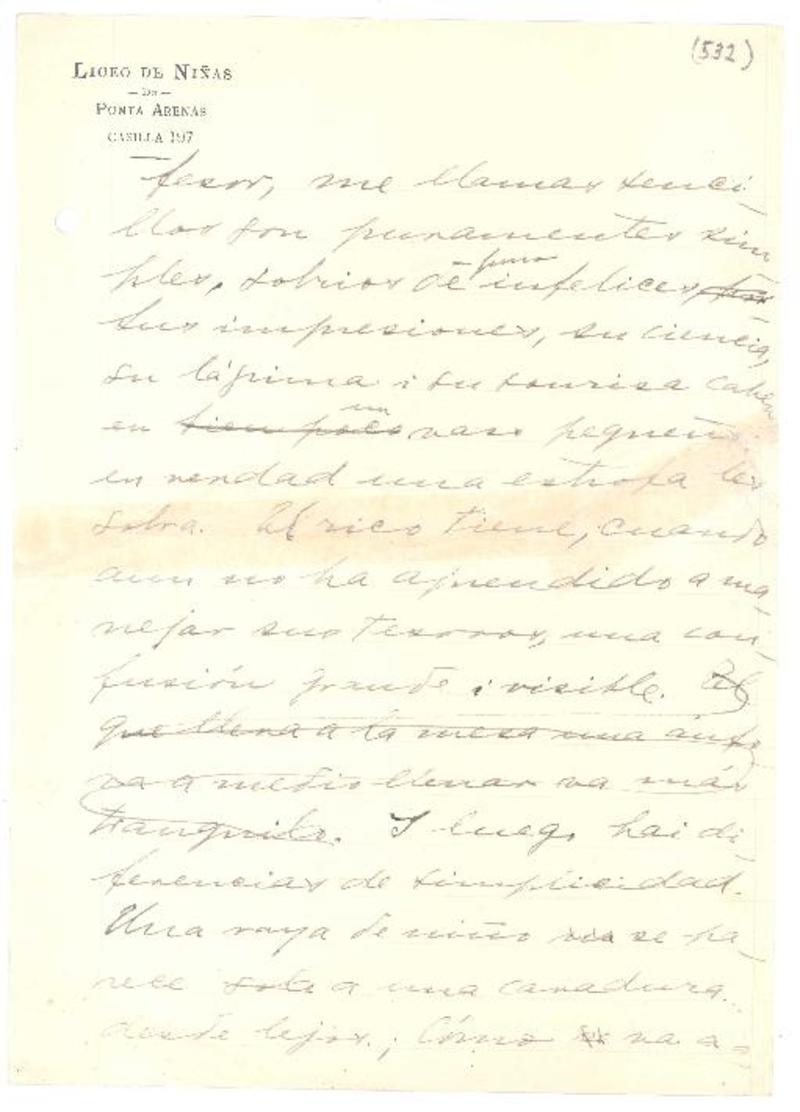 (532)
LICEO DE NIÑAS
— DE —
PUNTA ARENAS
CASILLA 197
fesor, me llamas senci-
llos son puramentes sim
ples, sobrios de puro infelices
sus impresiones, su ciencia,
su lágrima i su sonrisa caben
en tien poco un vaso pequeño.
en verdad una estrofa les
sobra. El rico tiene, cuando
aun no ha aprendido a ma-
nejar sus tesoros, una con-
fusión grande i visible. El
que lleva a la mesa una ánfo
ra a medio llenar va más
tranquilo. I luego, hai di
ferencias de simplicidad.
Una raya de niño se pa
rece solo a una cavadura
desde lejos. ¡Cómo va a-